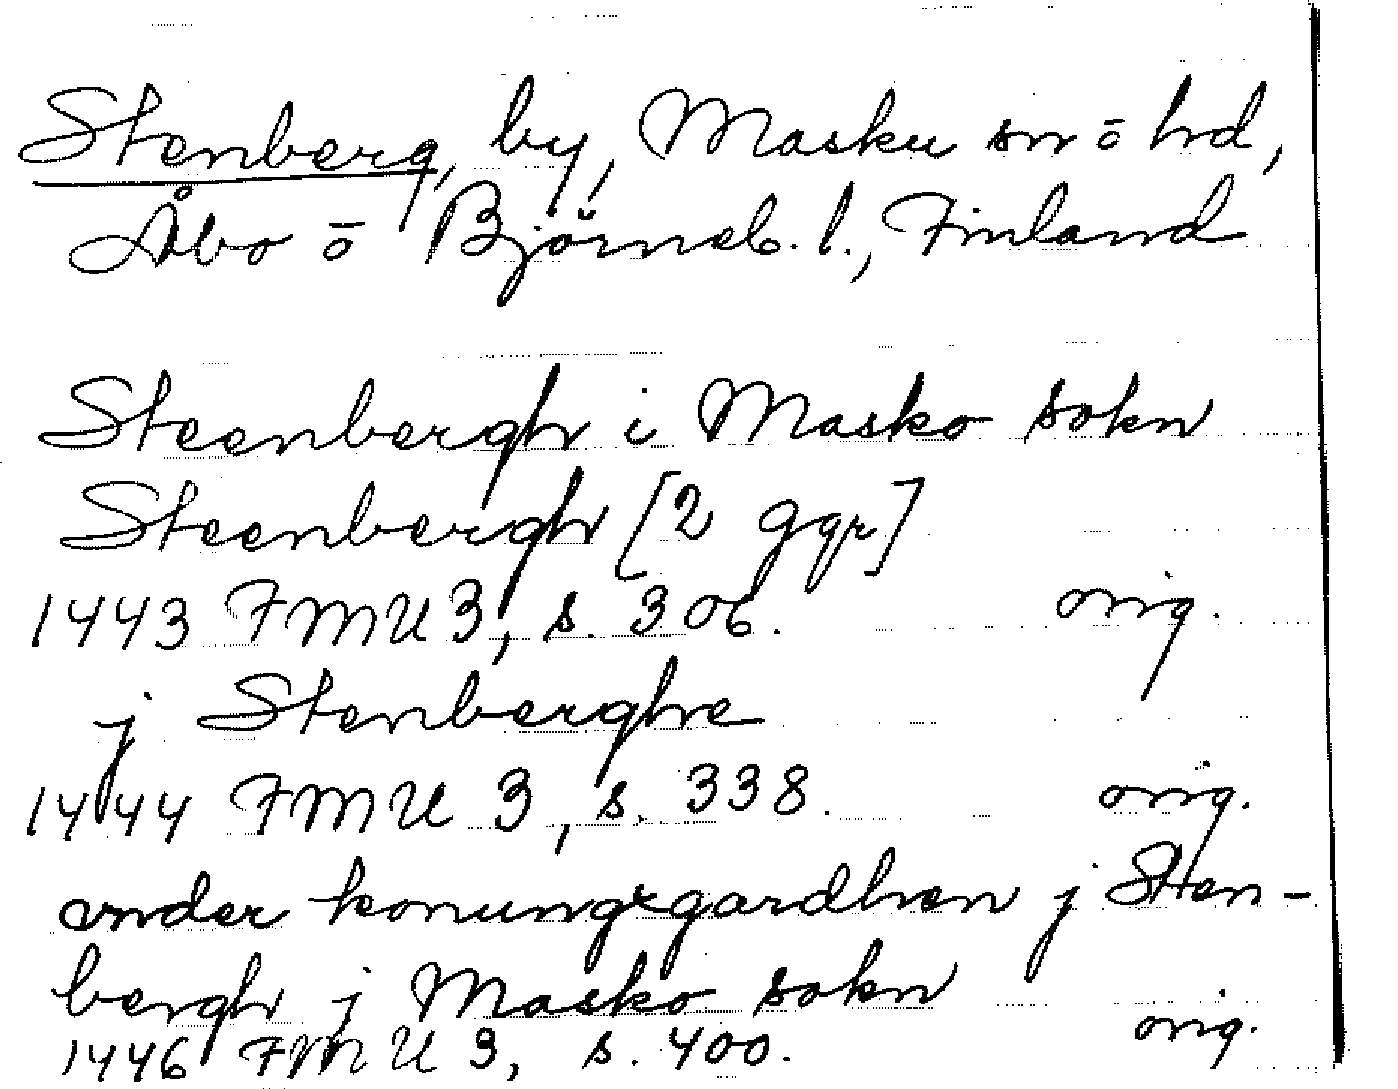 Stenberg, by, Masku sn o hd,
Åbo o Björneb. l., Finland
Steenbergh i Masko sokn
Steenbergh [2 ggr]
1443 FMU 3, s. 306. orig.
j Stenberghe
1444 FMU 3, s. 338. orig.
vnder konungxgardhen j Sten-
bergh j Masko sokn
1446 FMU 3, s. 400. orig.